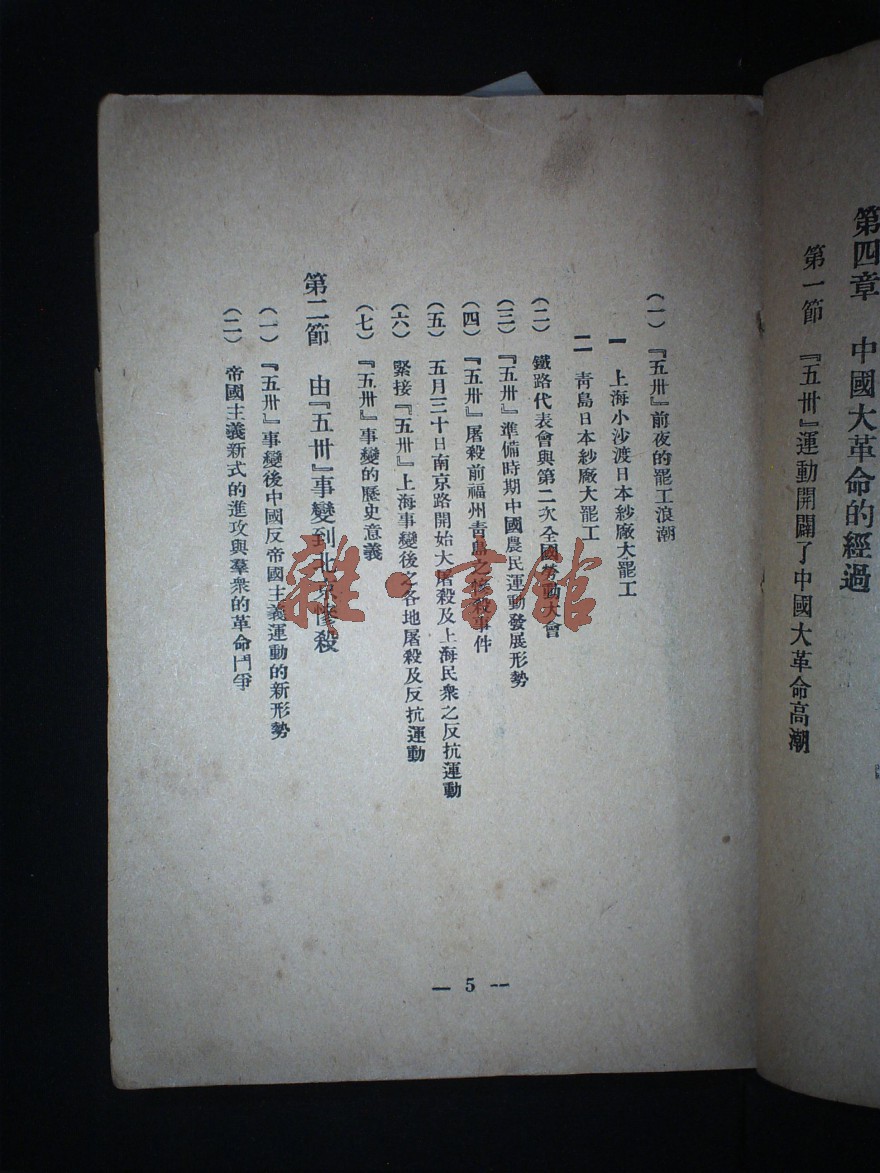 第四章　中國大革命的經過
第一節　『五卅』運動開闢了中國大革命高潮
（一）『五卅』前夜的罷工浪潮
一　上海小沙渡日本紗廠大罷工
二　青島日本紗廠大罷工
（二）鐵路代表會與第二次全國勞動大會
（三）『五卅』準備時期中國農民運動發展形勢
（四）『五卅』屠殺前福州青島之慘殺事件
（五）五月三十日南京路開始大屠殺及上海民衆之反抗運動
（六）緊接『五卅』上海事變後之各地屠殺及反抗運動
（七）『五卅』事變的歷史意義
第二節　由『五卅』事變到北京慘殺
（一）『五卅』事變後中國反帝國主義運動的新形勢
（二）帝國主義新式的進攻與羣衆的革命鬥爭
— 5 —
雜·書館